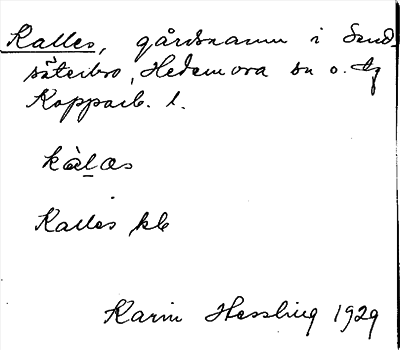 Kalles, gårdsnamn i Send-
säterbo, Hedemora sn o. tg
Kopparb. l.
kàlas
Kalles kb
Karin Hessling 1929